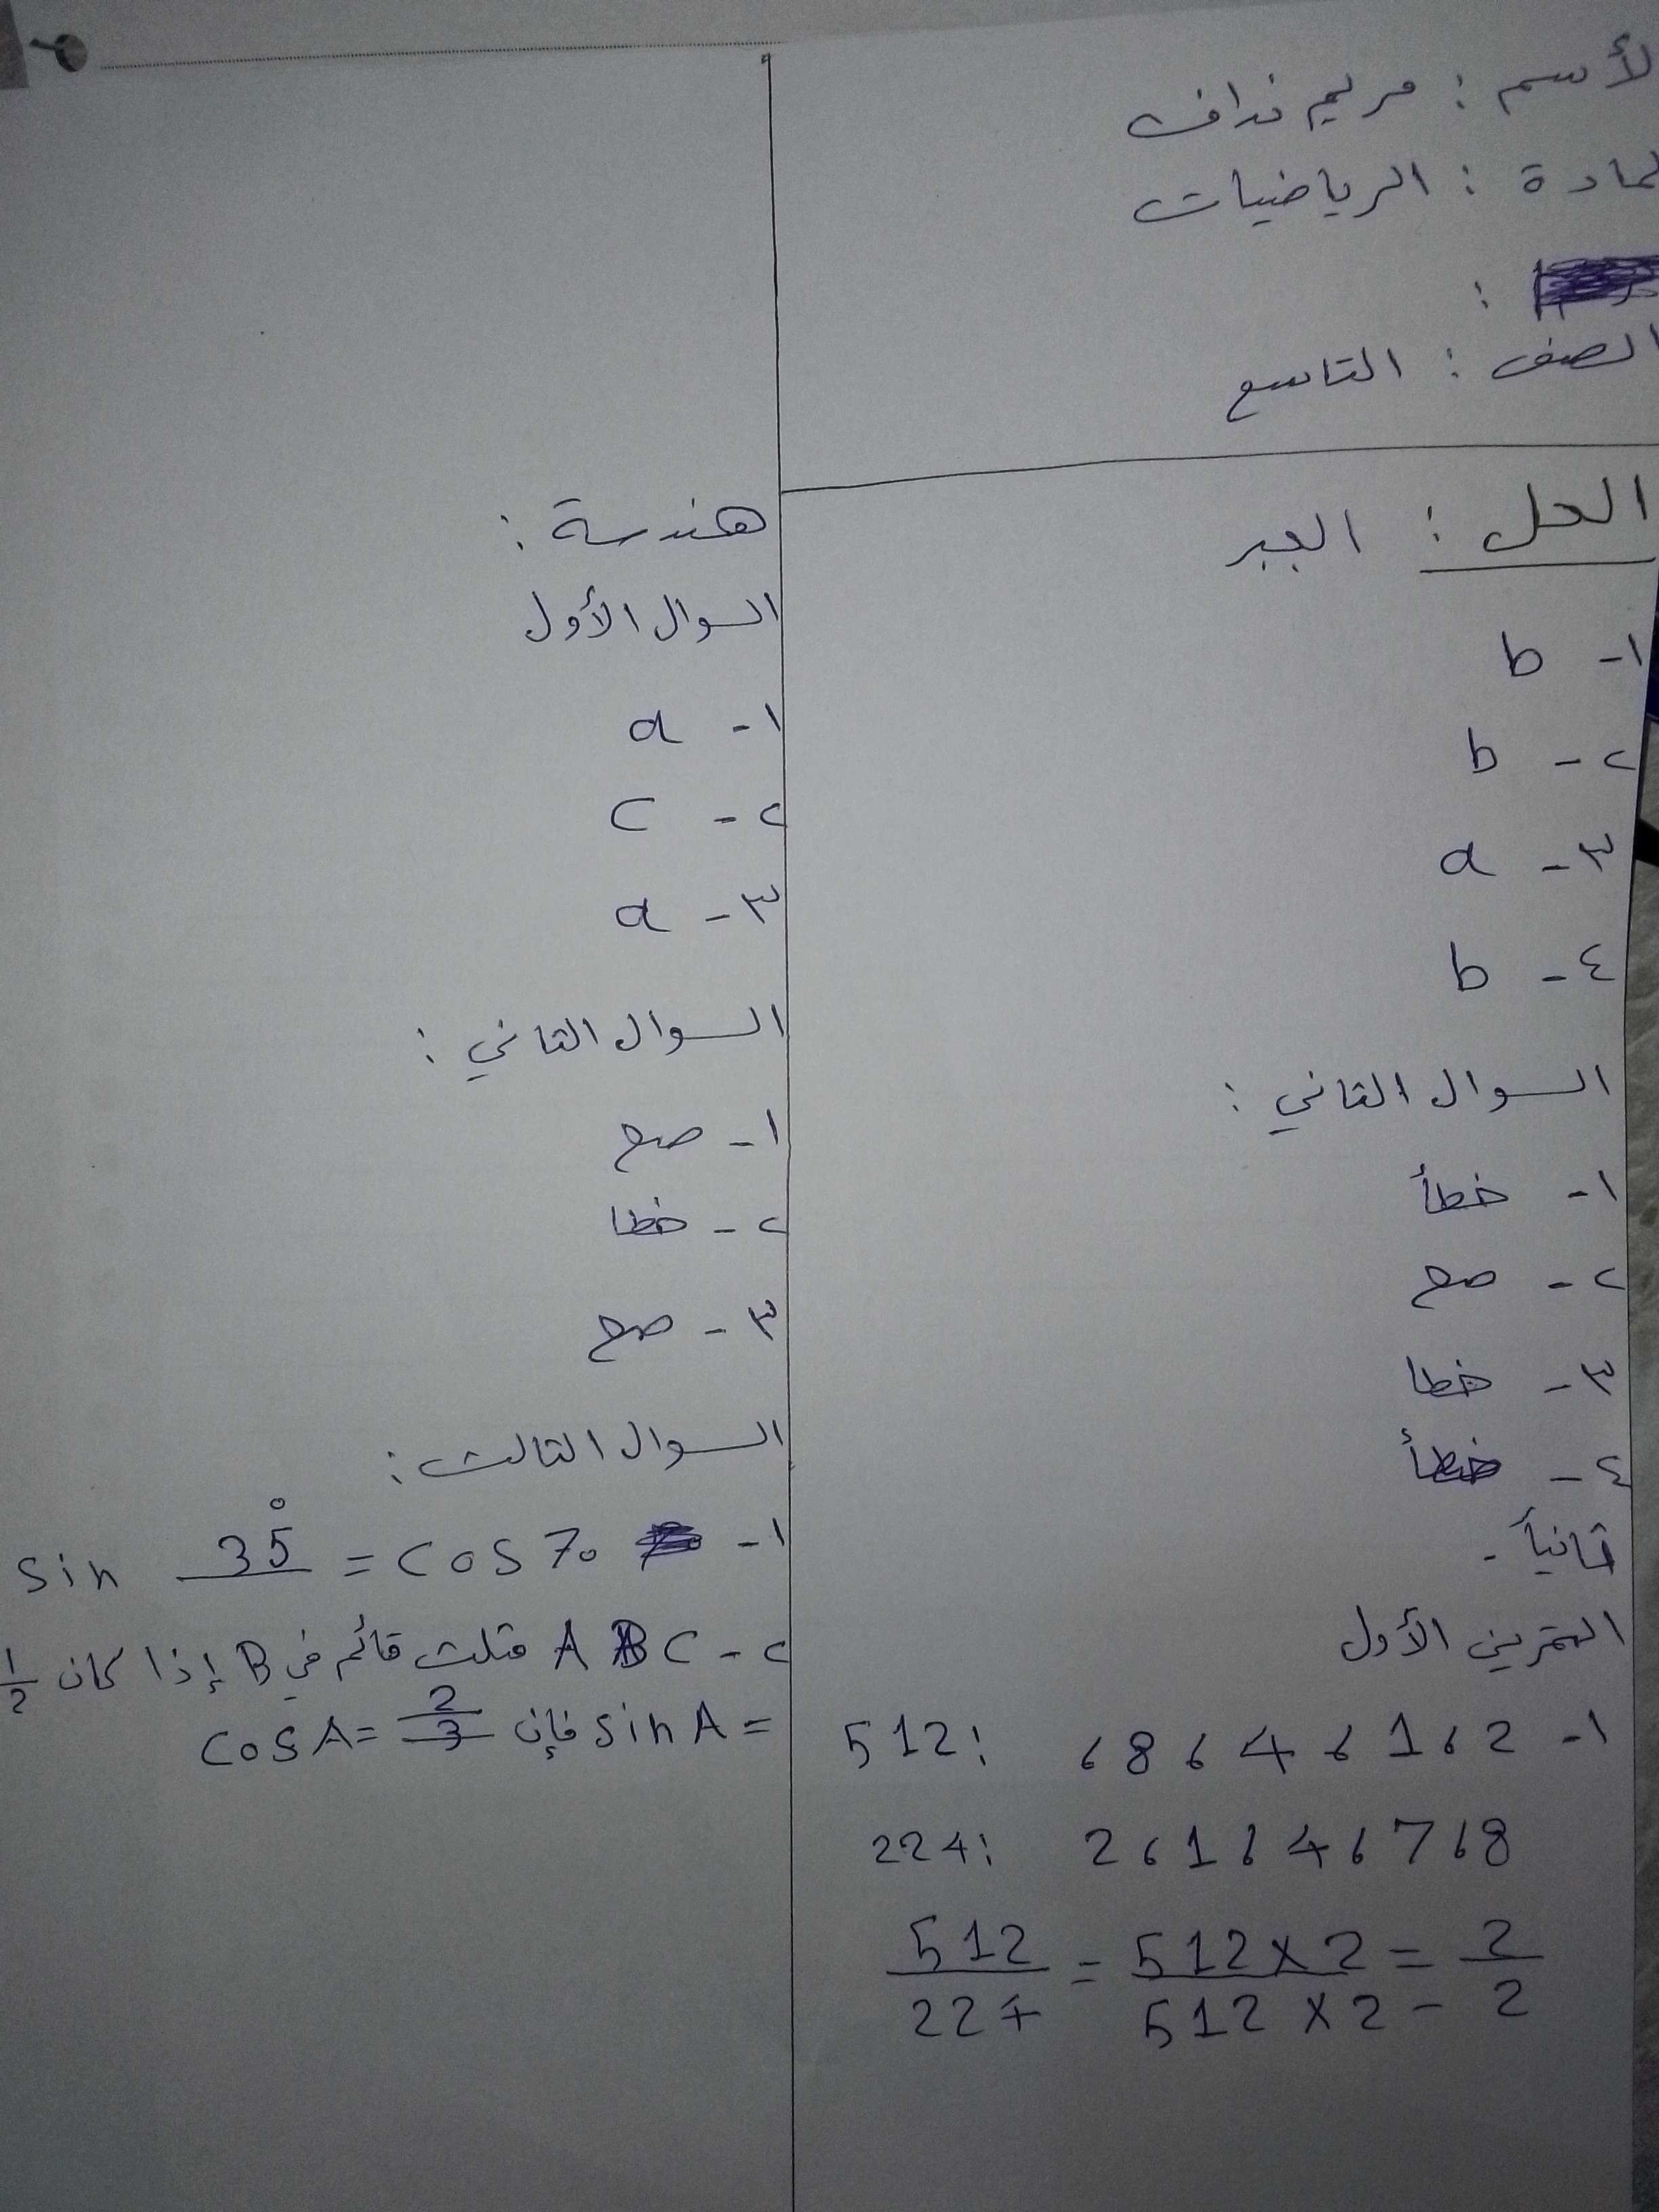 لأسم : مريم نداف
لمادة : الرياضيات
:
الصف : التاسع
الحل : الجبر
١- b
٢- b
٣- a
٤- b
السوال الثاني :
١- خطأ
٢- صح
٣- خطا
٤- خطأ
ثانياً -
التمرين الأول
١- 512 : ، 8 ، 4 ، 1 ، 2
224 : 2 ، 1 ، 4 ، 7 ، 8
512/224 = 512×2/512×2 = 2/2
هندسة :
السوال الأول
١- a
٢- c
٣- a
السوال الثاني :
١- صح
٢- خطا
٣- صح
السوال الثالث :
١- sin 35° = cos 70
٢- ABC مثلث قائم في B إذا كان 1/2
= sin A فإن cos A = 2/3